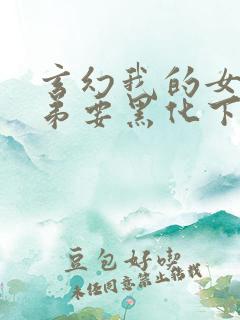 玄幻我的女
弟要黑化下
豆包好吃
未经同意禁止转载